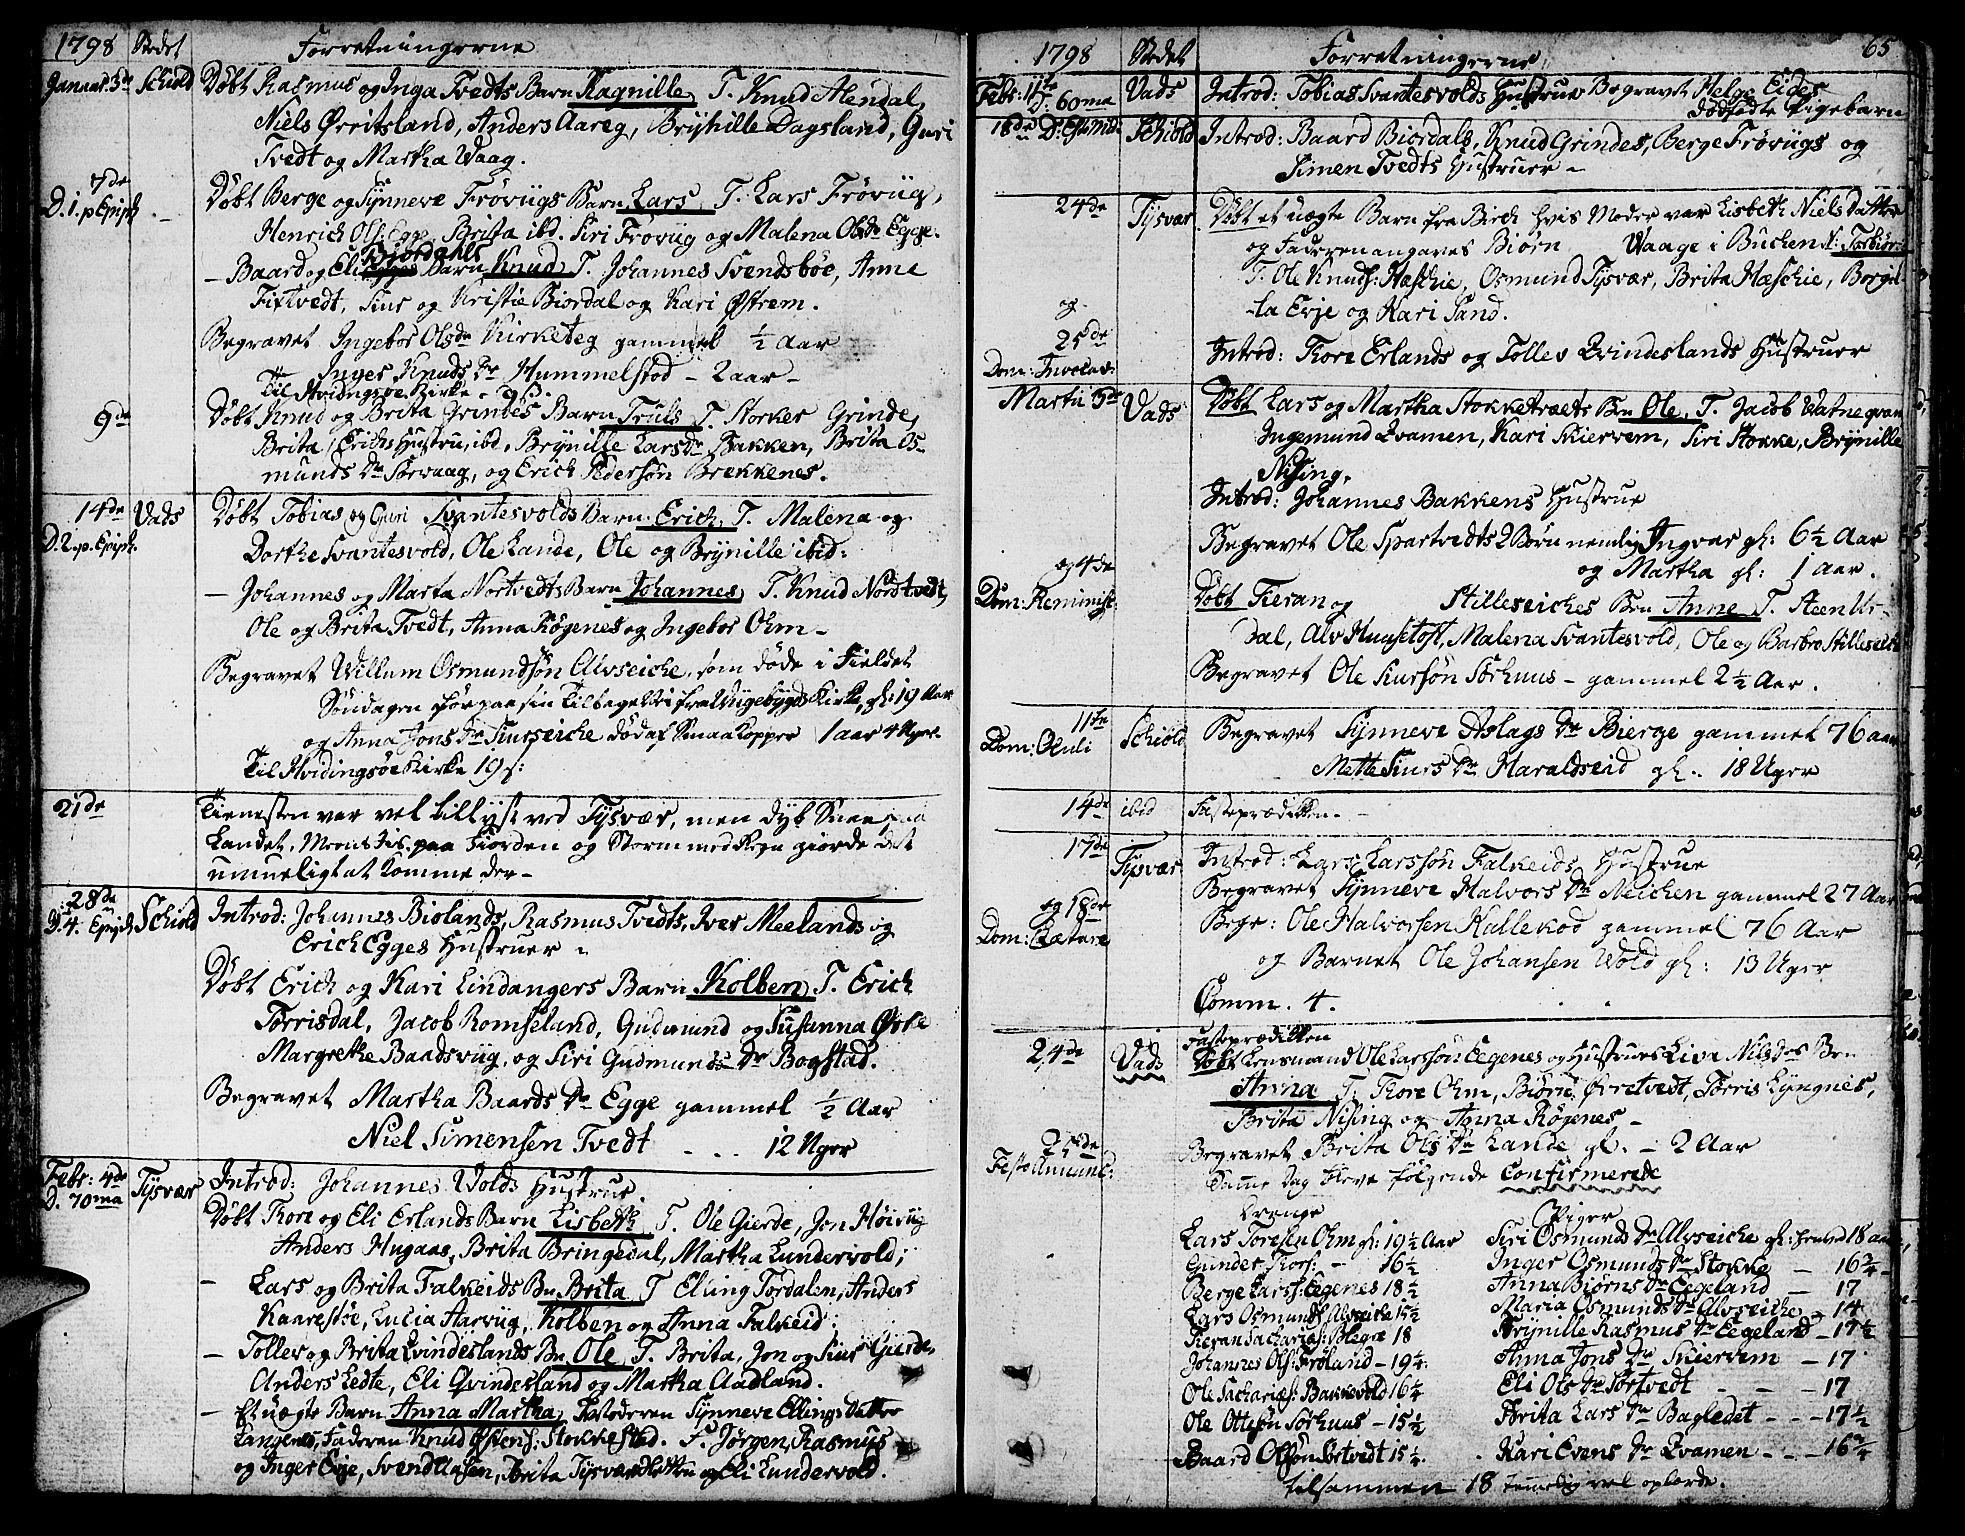 1798 Stedet Forretningerne
Januar 3de Schiold Døbt Rasmus og Inga Tvedts Barn Ragnille, T. Knud Alendal,
Niels Øreitsland, Anders Aareg, Brynille Dagsland, Guri
Tvedt og Martha Waag.
7de
D. 1. p. Epiph. Døbt Berge og Synneve Frøvigs Barn Lars, T. Lars Frøviig,
Henrich Ols: Egge, Brita ibd. Siri Frøviig og Malena Olsdr Egge.
Bjordahls
– Baard og Eli Barn Knud T. Johannes Svendsbøe, Anne
Fixtvedt, Siur og Kristie Biordal og Kari Østrem.
Begravet Ingebor Olsdr Kirketeg gammel ½ Aar
Inger Knuds Dr Hummelstod – 2 aar –
Til Hvidingsøe Kirke
9de Døbt Knud og Brita Grindes Barn Truls, T. Storker Grinde,
Brita Erichs Hustru, ibd, Brynille Lars Dr Bakken, Brita Os–
munds Dr Sørvaag, og Erich Pedersøn Brekkenes.
14de Vads Døbt Tobias og Guri Svantesvolds Barn Erich, T. Malena og
D. 2. p. Epiph. Dorthe Svantesvold, Ole Lande, Ole og Brynille ibid:
– Johannes og Marta Nortvedts Barn Johannes, T. Knud Nordtvedt,
Ole og Brita Tvedt, Anna Røgenes og Ingebor Ohm –
Begravet Willum Osmundsøn Alvseiche, som døde i Fieldet
Søndagen før paa sin Tilbagevei fra Kirke, gl: 19 Aar
og Anna Jons Dr Siurseiche død af Smaakopper 1 aar 4 Uger
Til Hvidingsøe Kirke 19 s:
21de Tienesten var vel tillyst ved Tysvær, men dyb Snee paa
Landet, Is paa Fiorden og Storm med giorde det
umueligt at komme der –
28de
D. 4. Epiph. Schiold Introd: Johannes Biolands, Rasmus Tvedts, Iver Meelands og
Erich Egges Hustruer –
Døbt Erich og Kari Lindangers Barn Kolben, T. Erich
Torrisdal, Jacob Romseland, Gudmund og Susanna Øvre
Margrethe Baadsviig, og Siri Gudmunds Dr Bogstad.
Begravet Martha Baards Dr Egge gammel ½ Aar
Niel Simensen Tvedt – – – 12 Uger
Febr: 4de Tysvær Introd: Johannes Wolds Hustrue.
D. 70ma
Døbt Tore og Eli Erlands Barn Lisbeth, T. Ole Gierde, Jon Høiviig
Anders Hugaas, Brita Bringedal, Martha Lundervold;
– Lars og Brita Falkeids Bn Brita T Elling Tordalen, Anders
Kaarestøe, Lucia Aarviig, Kolben og Anna Falkeid;
– Tollev og Brita Qvindeslands Bn Ole T. Brita, Jon og Siur Gierde,
Anders Ledte, Eli Qvindesland og Martha Aadland.
– Et uægte Barn Anna Martha, Moderen Synneve Ellings Datter
Langenes, Faderen Knud Østens: Stokkestad. F. Jørgen, Rasmus
og Inger Erje, Svend Aasen, Brita Tysvær og Eli Lundervold.
1798 Stedet Forretningerne 65
Febr: 11te Vads Introd: Tobias Svantesvolds Hustrue Begravet Helge Eides
D: 60ma dødfødte Pigebarn
18de D: Estomih: Schiold Introd: Baard Biordals, Knud Grindes, Berge Frøviigs og
Simen Tvedts Hustruer –
24de Tysvær Døbt et uægte Barn fra Birch hvis Moder var Lisbeth Niels Datter
og Faderen angaves Biørn Waage i Buchen N: Torbiør
T. Ole Knuds: Hæschie, Osmund Tysvær, Brita Hæschie, Borgil–
–la Erje og Kari Sand.
og
25de
Dom: Invocav: Introd: Thore Erlands og Tolles Qvindeslands Hustruer
Martii 3de Vads Døbt Lars og Martha Stokketræets Bn Ole, T. Jacob Watnegvam
Ingemund Qvamen, Kari Skiervem, Siri Stokke, Brynille
Nising,
Introd: Johannes Bakkens Hustrue
Begravet Ole Spartvedts 2 Børn nemlig Ingvar gl: 6½ Aar
og 4de og Martha gl: 1 Aar.
Dom: Reminisc: Døbt Fieran og Stilleseiches Bn Anne T. Steen Ur–
dal, Alv Huusetoft, Malena Svantesvold, Ole og Barbro Stilleseich
Begravet Ole Siursøn Sørhuus – gammel 2½ Aar.
11te
Dom: Oculi Schiold Begravet Synneve Aslags Dr Bierge gammel 76 aar
Mette Siurs Dr Haraldseid gl: 18 Uger
14de ibid Fasteprædikken. –
17de Tysvær Introd: Lars Larssøn Falkeids Hustrue
Begravet Synneve Halvors Dr Neichen gammel 27 Aar
og 18de Begr: Ole Halvorsen Kallekod gammel 76 Aar
Dom: Lætare og Barnet Ole Johansen Wold gl: 13 Uger
Comm. 4.
24de Vads Fasteprædikken
Døbt Lensmand Ole Larssøn Eegenes og Hustrues Liva Nilsdrs Bn
Anna T. Thore Ohm, Biørn Ørretvedt, Torris Lyngnes,
Brita Nising og Anna Røgenes –
25de Begravet Brita Ols Dr Lande gl. – 2 Aar
Samme Dag bleve følgende Confirmerede
Drenge Piger
Lars Toresøn Ohm gl: 19½ Aar Siri Osmunds Dr Alvseiche gl: 18 aar,
Gunder Thors: – 16½ Inger Osmunds Dr Stokke – 16¾
Berge Larss: Eegenes 18½ Anna Biørns Dr Eegeland – 17
Lars Osmunds: Alvseiche 15½ Maria Osmunds Dr Alvseiche – 14
Fieran Sacharias: Blegre 18 Brynille Rasmus Dr Eegeland – 17½
Johannes Ols: Frøland – 19¼ Anna Jons Dr Skiervem – 17
Ole Sacharias: Bakkevold 16¼ Eli Ols Dr Sørtvedt – – 17
Ole Ottesøn Sørhuus – 15½ Brita Lars Dr Bagledet – – 17½
Baard Olssøn Sørtvedt 15½ Kari Evens Dr Qvamen – – 16¾
tilsammen 18 temmelig vel oplærde.